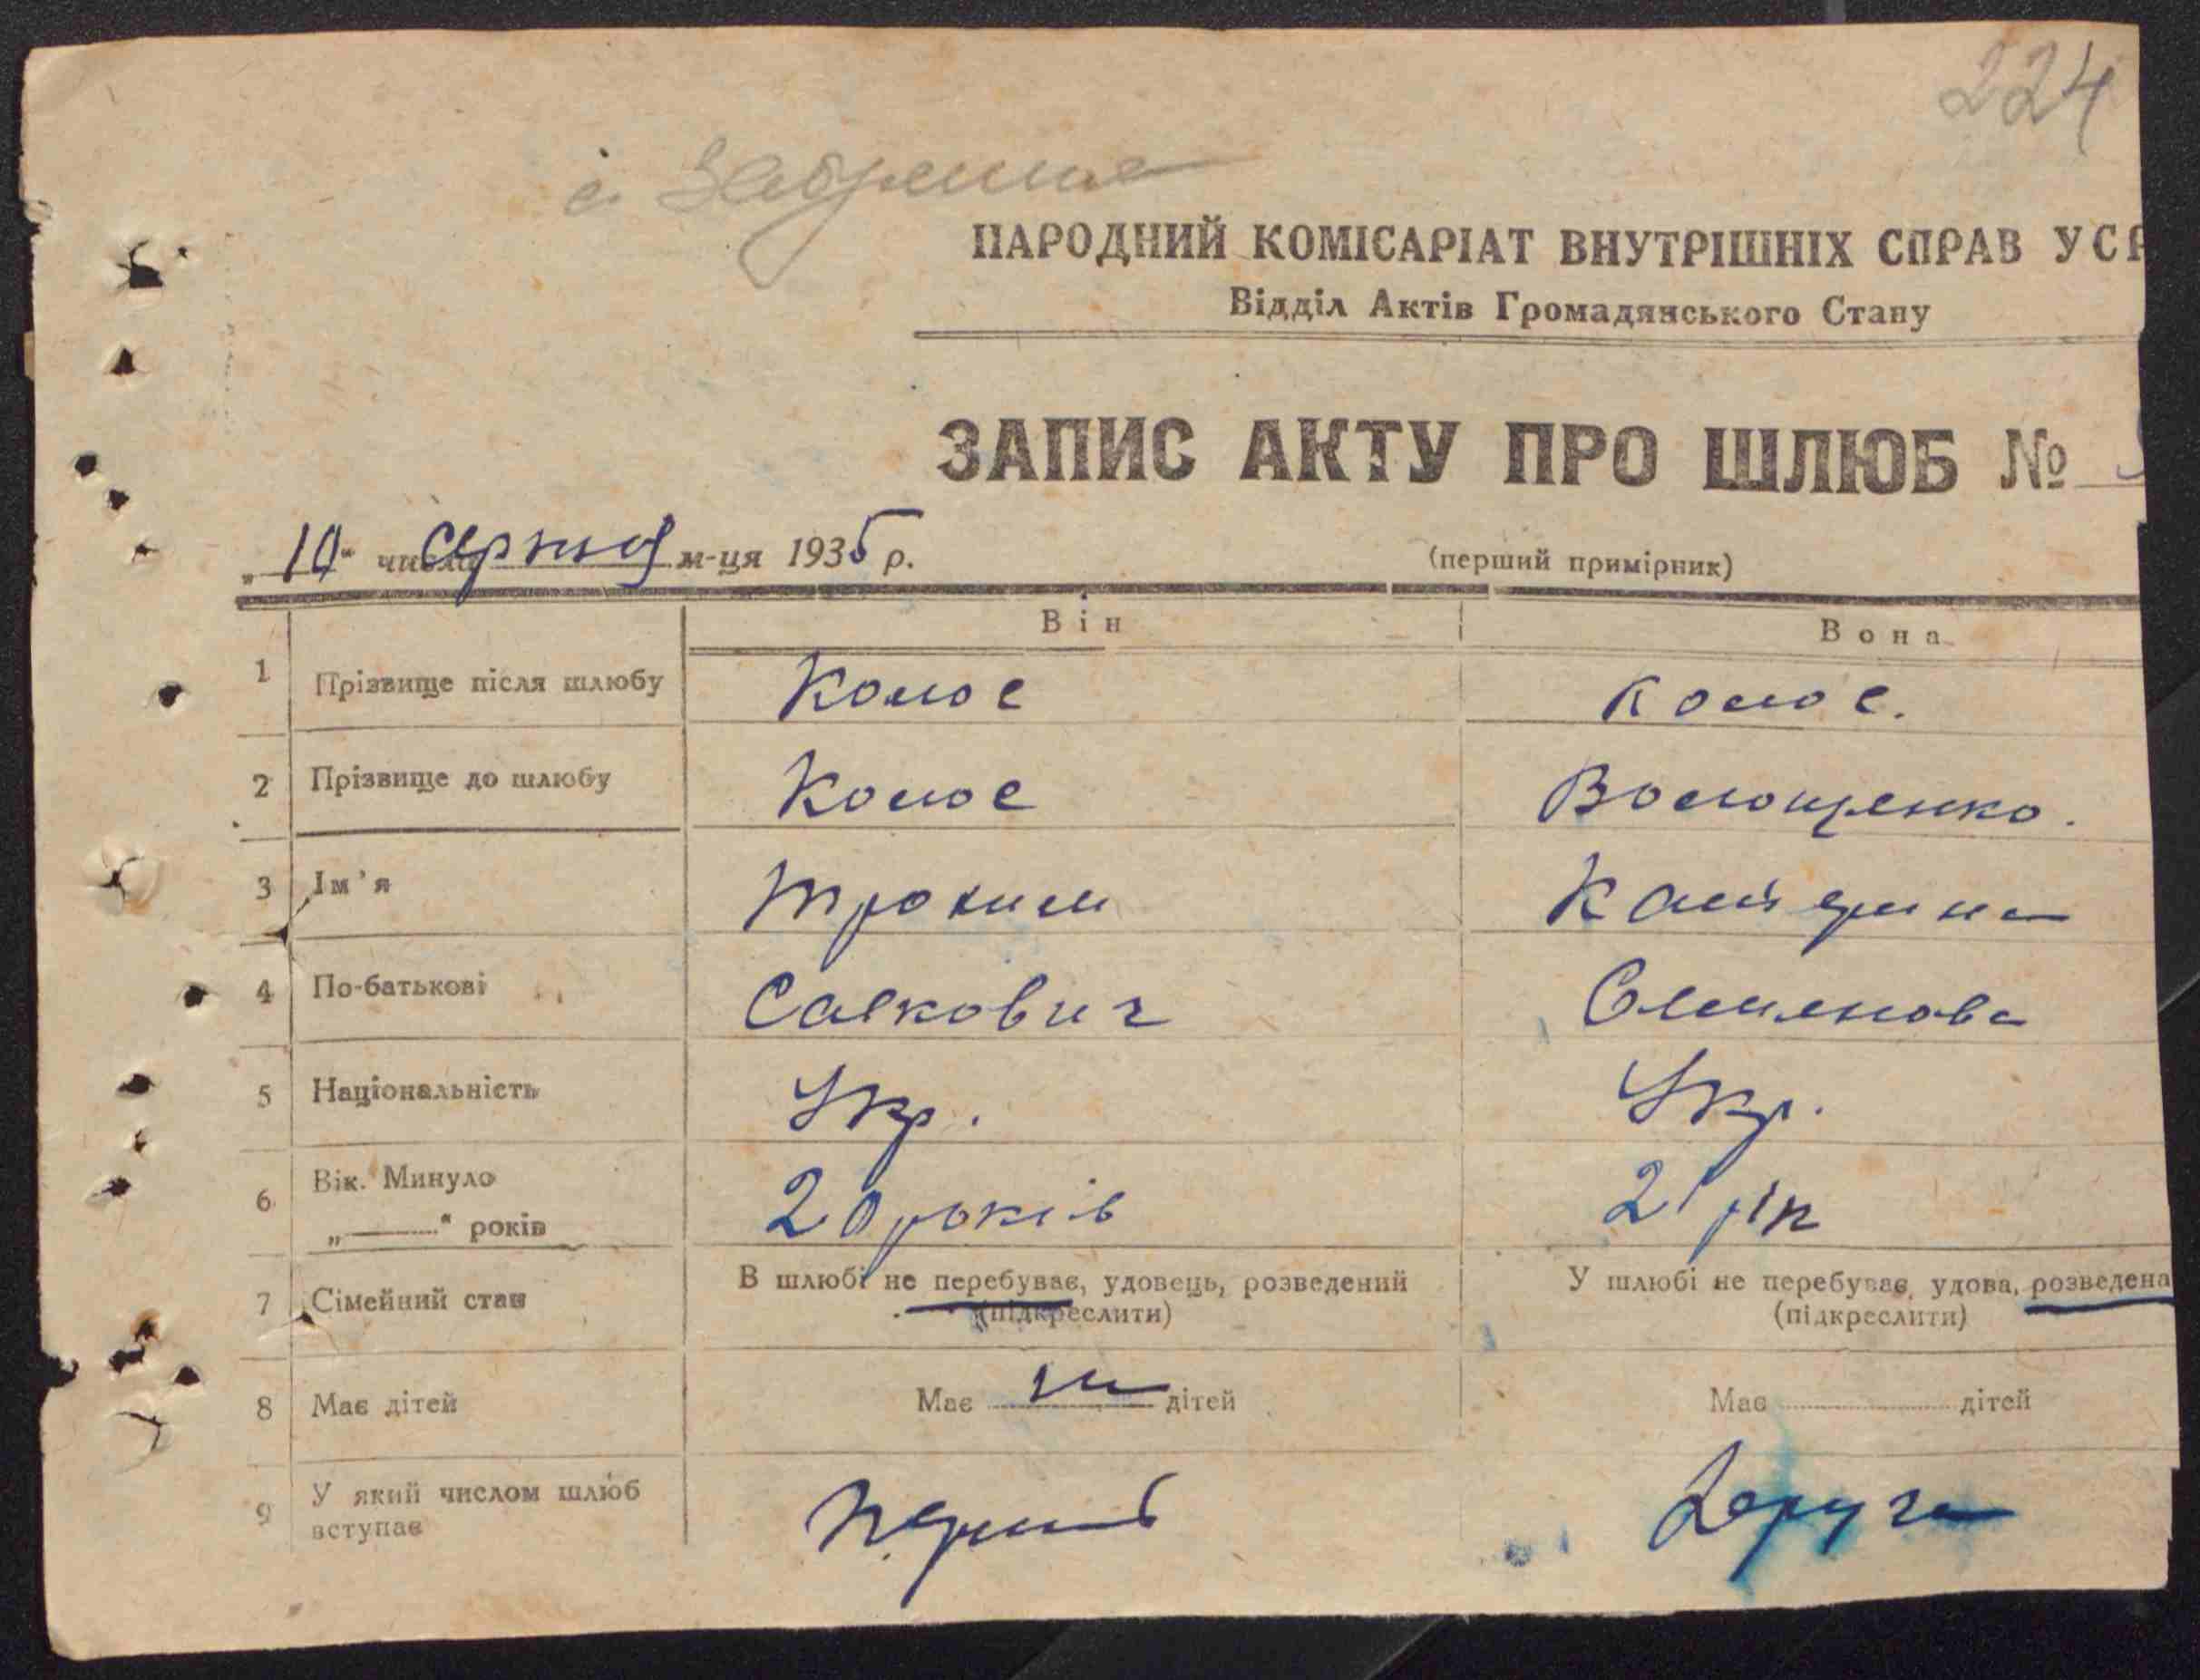 224
с. Забрення
НАРОДНИЙ КОМІСАРІАТ ВНУТРІШНІХ СПРАВ УСР
Відділ Актів Громадянського Стану
ЗАПИС АКТУ ПРО ШЛЮБ №
„10“ числа серпня м-ця 1935 р.
(перший примірник)
Він Вона
1 Прізвище після шлюбу Колос Колос.
2 Прізвище до шлюбу Колос Волощенко.
3 Ім'я Трохим Катерина
4 По-батькові Савкович Семенова
5 Національність Укр. Укр.
6 Вік. Минуло
„——“ років 20 років 21 рік
7 Сімейний стан В шлюбі не перебуває, удовець, розведений У шлюбі не перебуває, удова, розведена
(підкреслити) (підкреслити)
8 Має дітей Має дітей Має дітей
9 У який числом шлюб
вступає Перший Друга